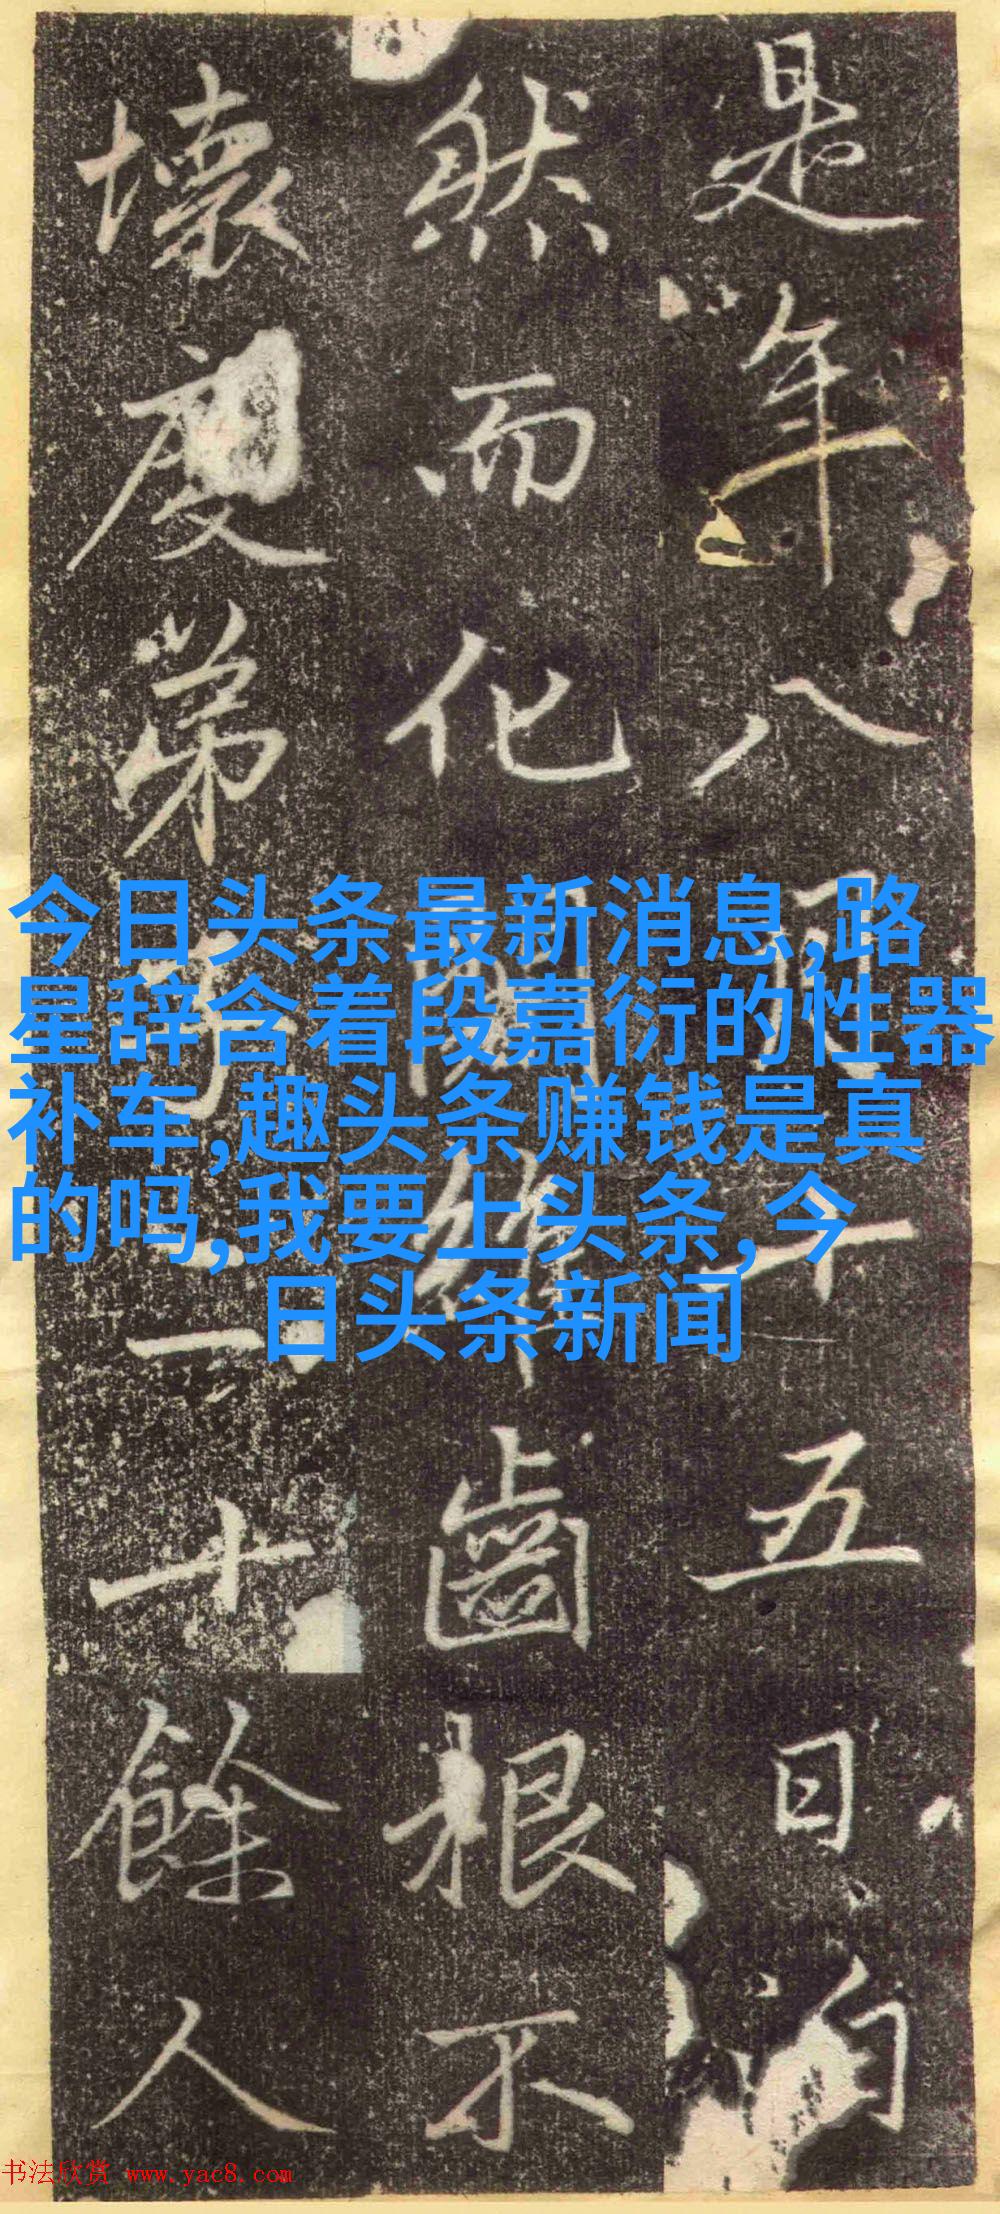 今日头条最新消息,路
星辞含着段嘉衍的性器
补车,趣头条赚钱是真
的吗,我要上头条, 今
日头条新闻
是年八月十五日自
然而化齒根不
壞度弟子十餘人
书法欣赏 www.yac8.com